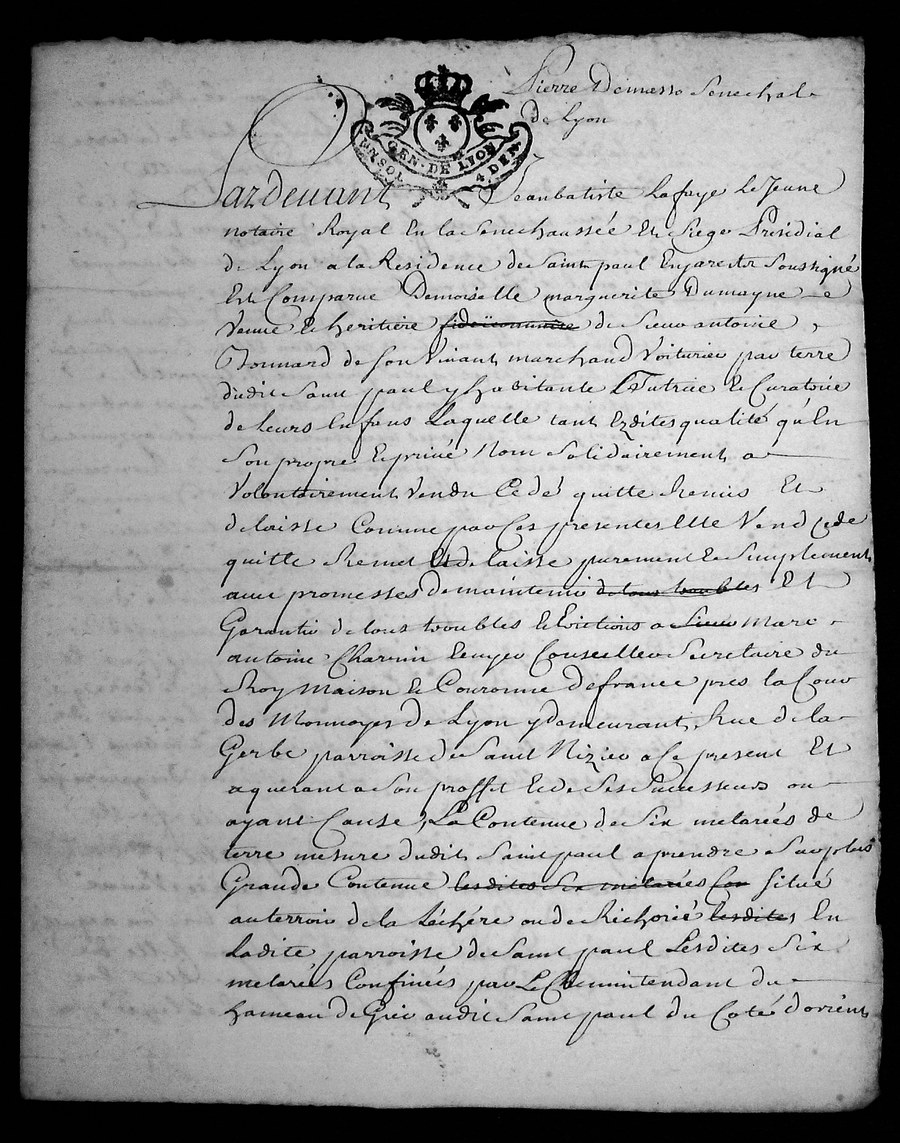 Pierre Demasso Senechal
de Lyon
GEN. DE LYON
UN SOL 4 DEN
Pardevant Jeanbatiste Lafaye Le Jeune
notaire Royal En la Senechaussée Et Siege Présidial
de Lyon a la Residence de Saint paul Enjarest Soussigné
Est Comparue Demoiselle marguerite Dumayne
Veuve & heritiere fideicommise de Sieur antoine
Bonnard de son Vivant marchand Voiturier par terre
dudit Saint paul y habitante Tutrice & Curatrice
de leurs Enfans Laquelle tant Ezdites qualité qu'En
Son propre & privé Nom Solidairement a
Volontairement Vendu Cedé quitté Remis Et
delaissé Comme par Ces presentes Elle Vend Cede
quitte Remet Et delaisse purement & Simplement
avec promesses de maintenir de tous troubles Et
Garantir de tous troubles & Evictions a Sieur Marc
antoine Charvin Ecuyer Conseiller Secretaire du
Roy maison & Couronne de france pres la Cour
des Monnoyes de Lyon y demeurant Rue de la
Gerbe parroisse de Saint Nizier a Ce present Et
aquerant a Son proffit & de Ses Successeurs ou
ayant Cause, La Contenue de Six meterées de
terre mesure dudit Saint paul a prendre Sur plus
Grande Contenue lesdites Six meterées Son Situé
au terroir de la Léchére ou de Richorié lesdites En
Ladite parroisse de Saint paul Lesdites Six
meterées Confinées par Le Chemin tendant du
hameau de Griev audit Saint paul du Coté d'orient